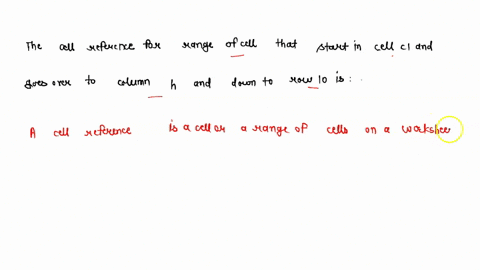 The cell reference for range of cell that start in cell c1 and
goes over to column h and down to row 10 is:
A cell reference is a cell or a range of cells on a workshee